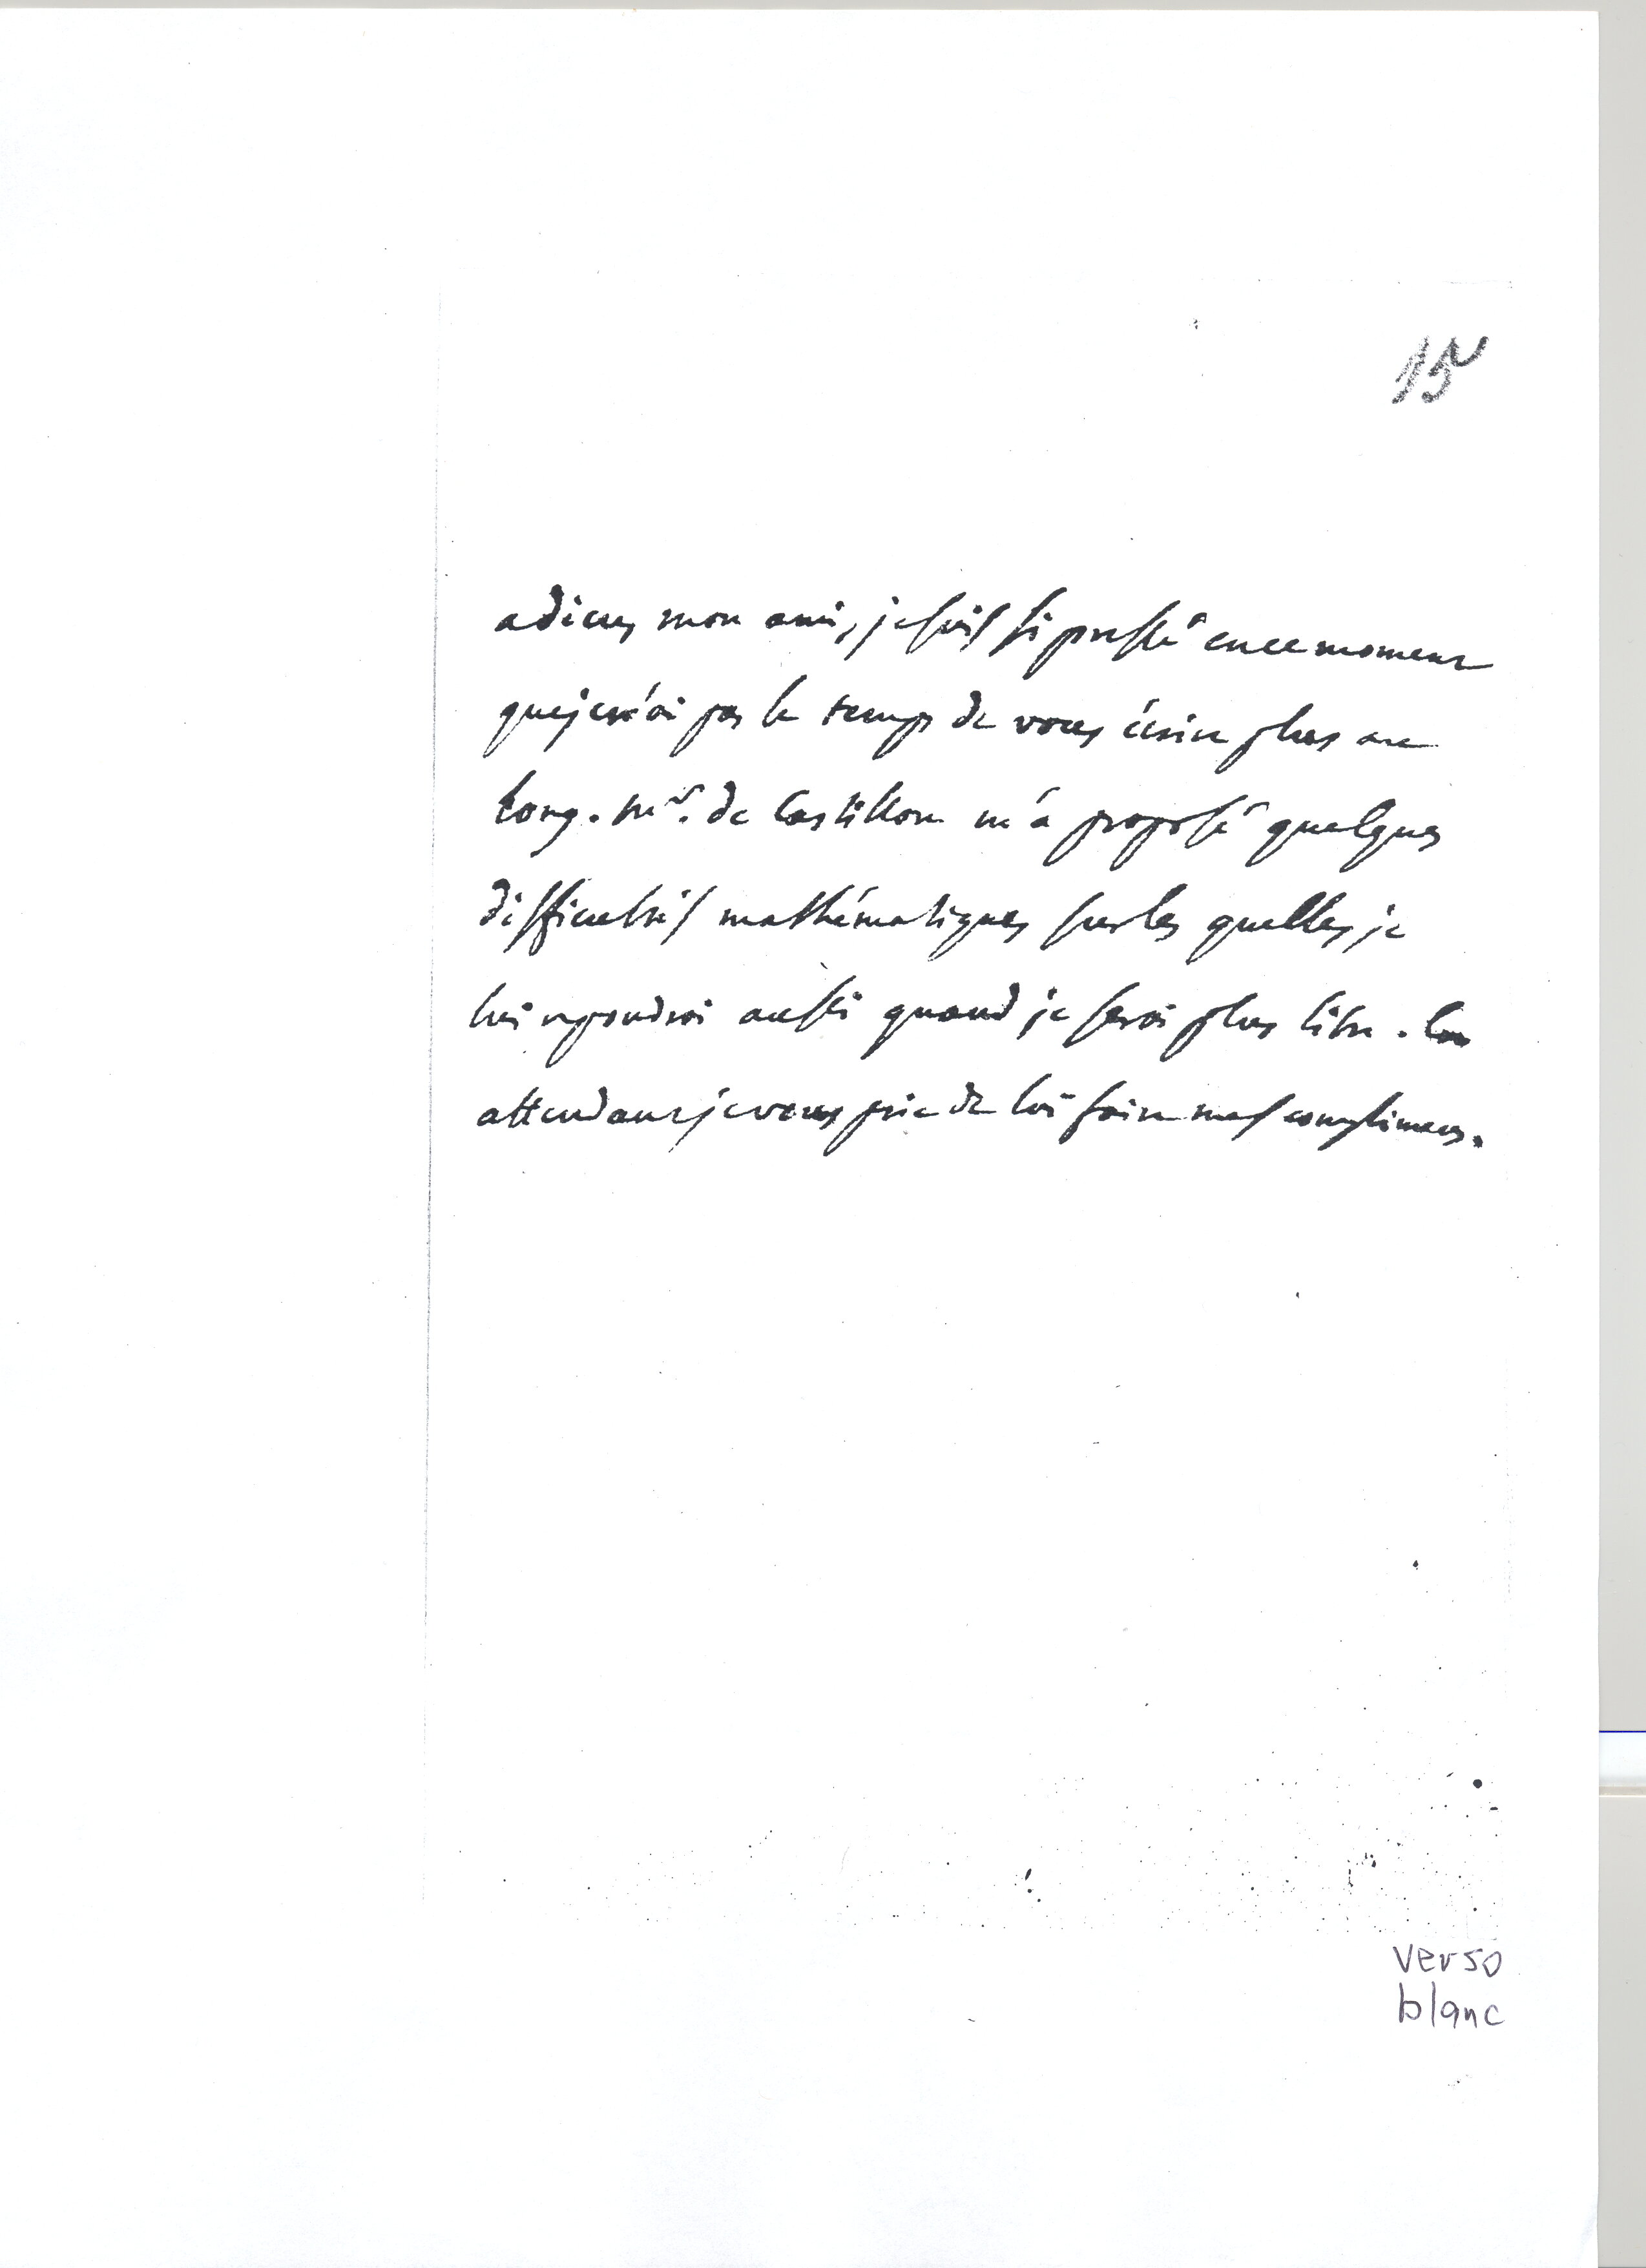 15
adieu, mon ami, je suis si pressé en ce moment
que je n'ai pas le temps de vous écrire plus au
long. Mr. de Castillon m'a proposé quelques
difficultés mathématiques sur les quelles je
lui repondrai aussi quand je serai plus libre. En
attendant je vous prie de lui faire mes complimens.
verso
blanc